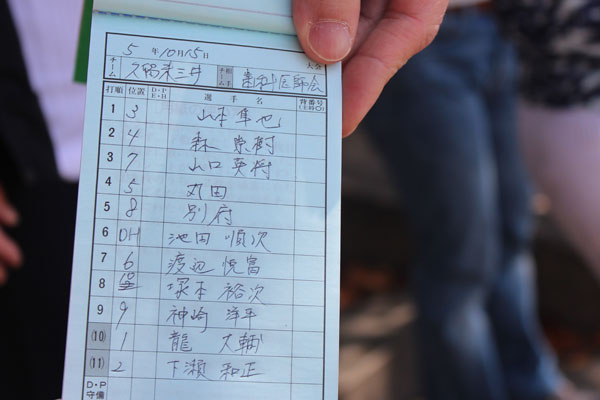 5 年 10 月 15 日 大会
チーム 久留米三井 相手チーム 歯科医師会
打順 位置 D・P E・H 選手名 背番号(主将○)
1 3 山本 隼也
2 4 森 崇樹
3 7 山口 英将
4 5 丸田
5 8 別府
6 DH 池田 順次
7 6 渡辺 悦富
8 塚本 裕次
9 9 神崎 洋平
(10) 1 龍 大輔
(11) 2 下瀬 和正
D・P
守備